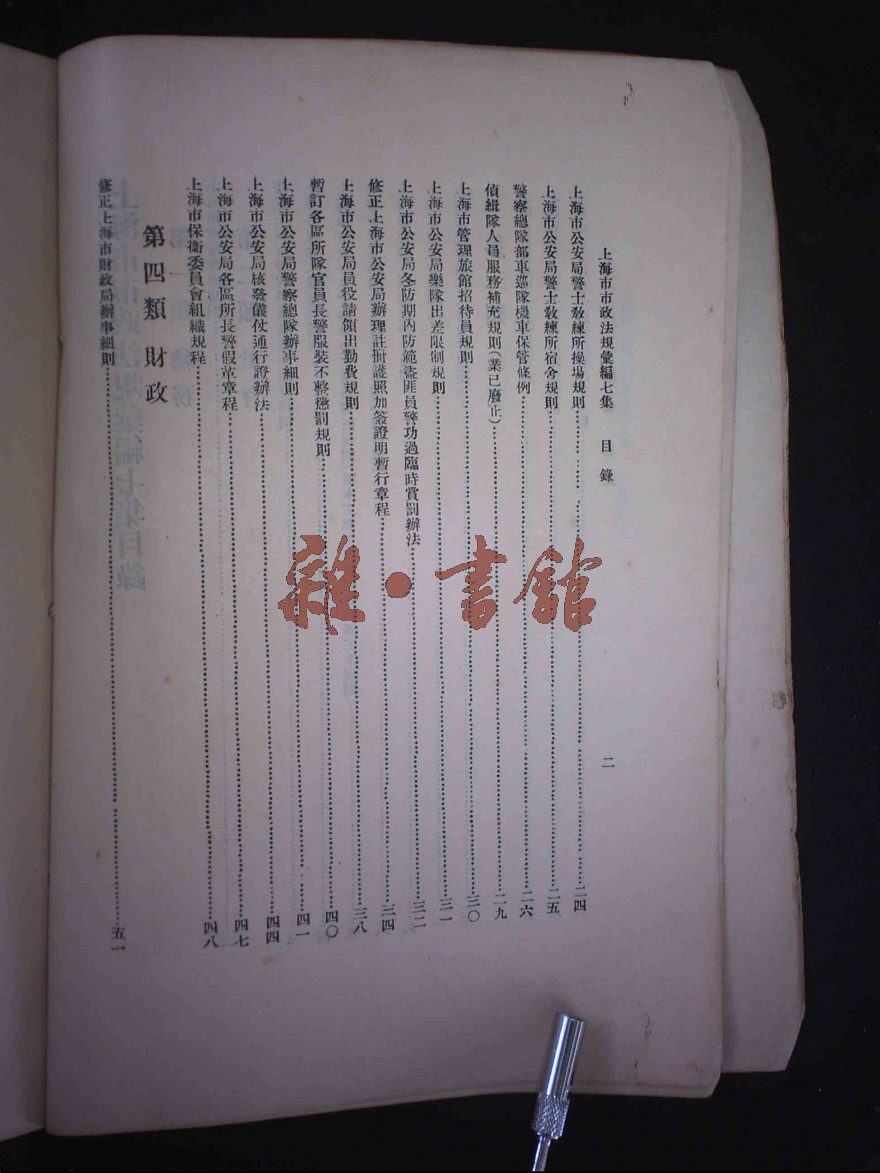 上海市市政法規彙編七集 目錄 二
上海市公安局警士教練所操場規則 二四
上海市公安局警士教練所宿舍規則 二五
警察總隊部車巡隊機車保管條例 二六
偵緝隊人員服務補充規則(業已廢止) 二九
上海市管理旅館招待員規則 三〇
上海市公安局樂隊出差限制規則 三一
上海市公安局冬防期內防範盜匪員警功過臨時賞罰辦法 三二
修正上海市公安局辦理註冊護照加簽證明暫行章程 三四
上海市公安局員役請領出勤費規則 三八
暫訂各區所隊官員長警服裝不整懲罰規則 四〇
上海市公安局警察總隊辦事細則 四一
上海市公安局核發儀仗通行證辦法 四四
上海市公安局各區所長警假革章程 四七
上海市保衛委員會組織規程 四八
第四類 財政
修正上海市財政局辦事細則 五一
雜·書館